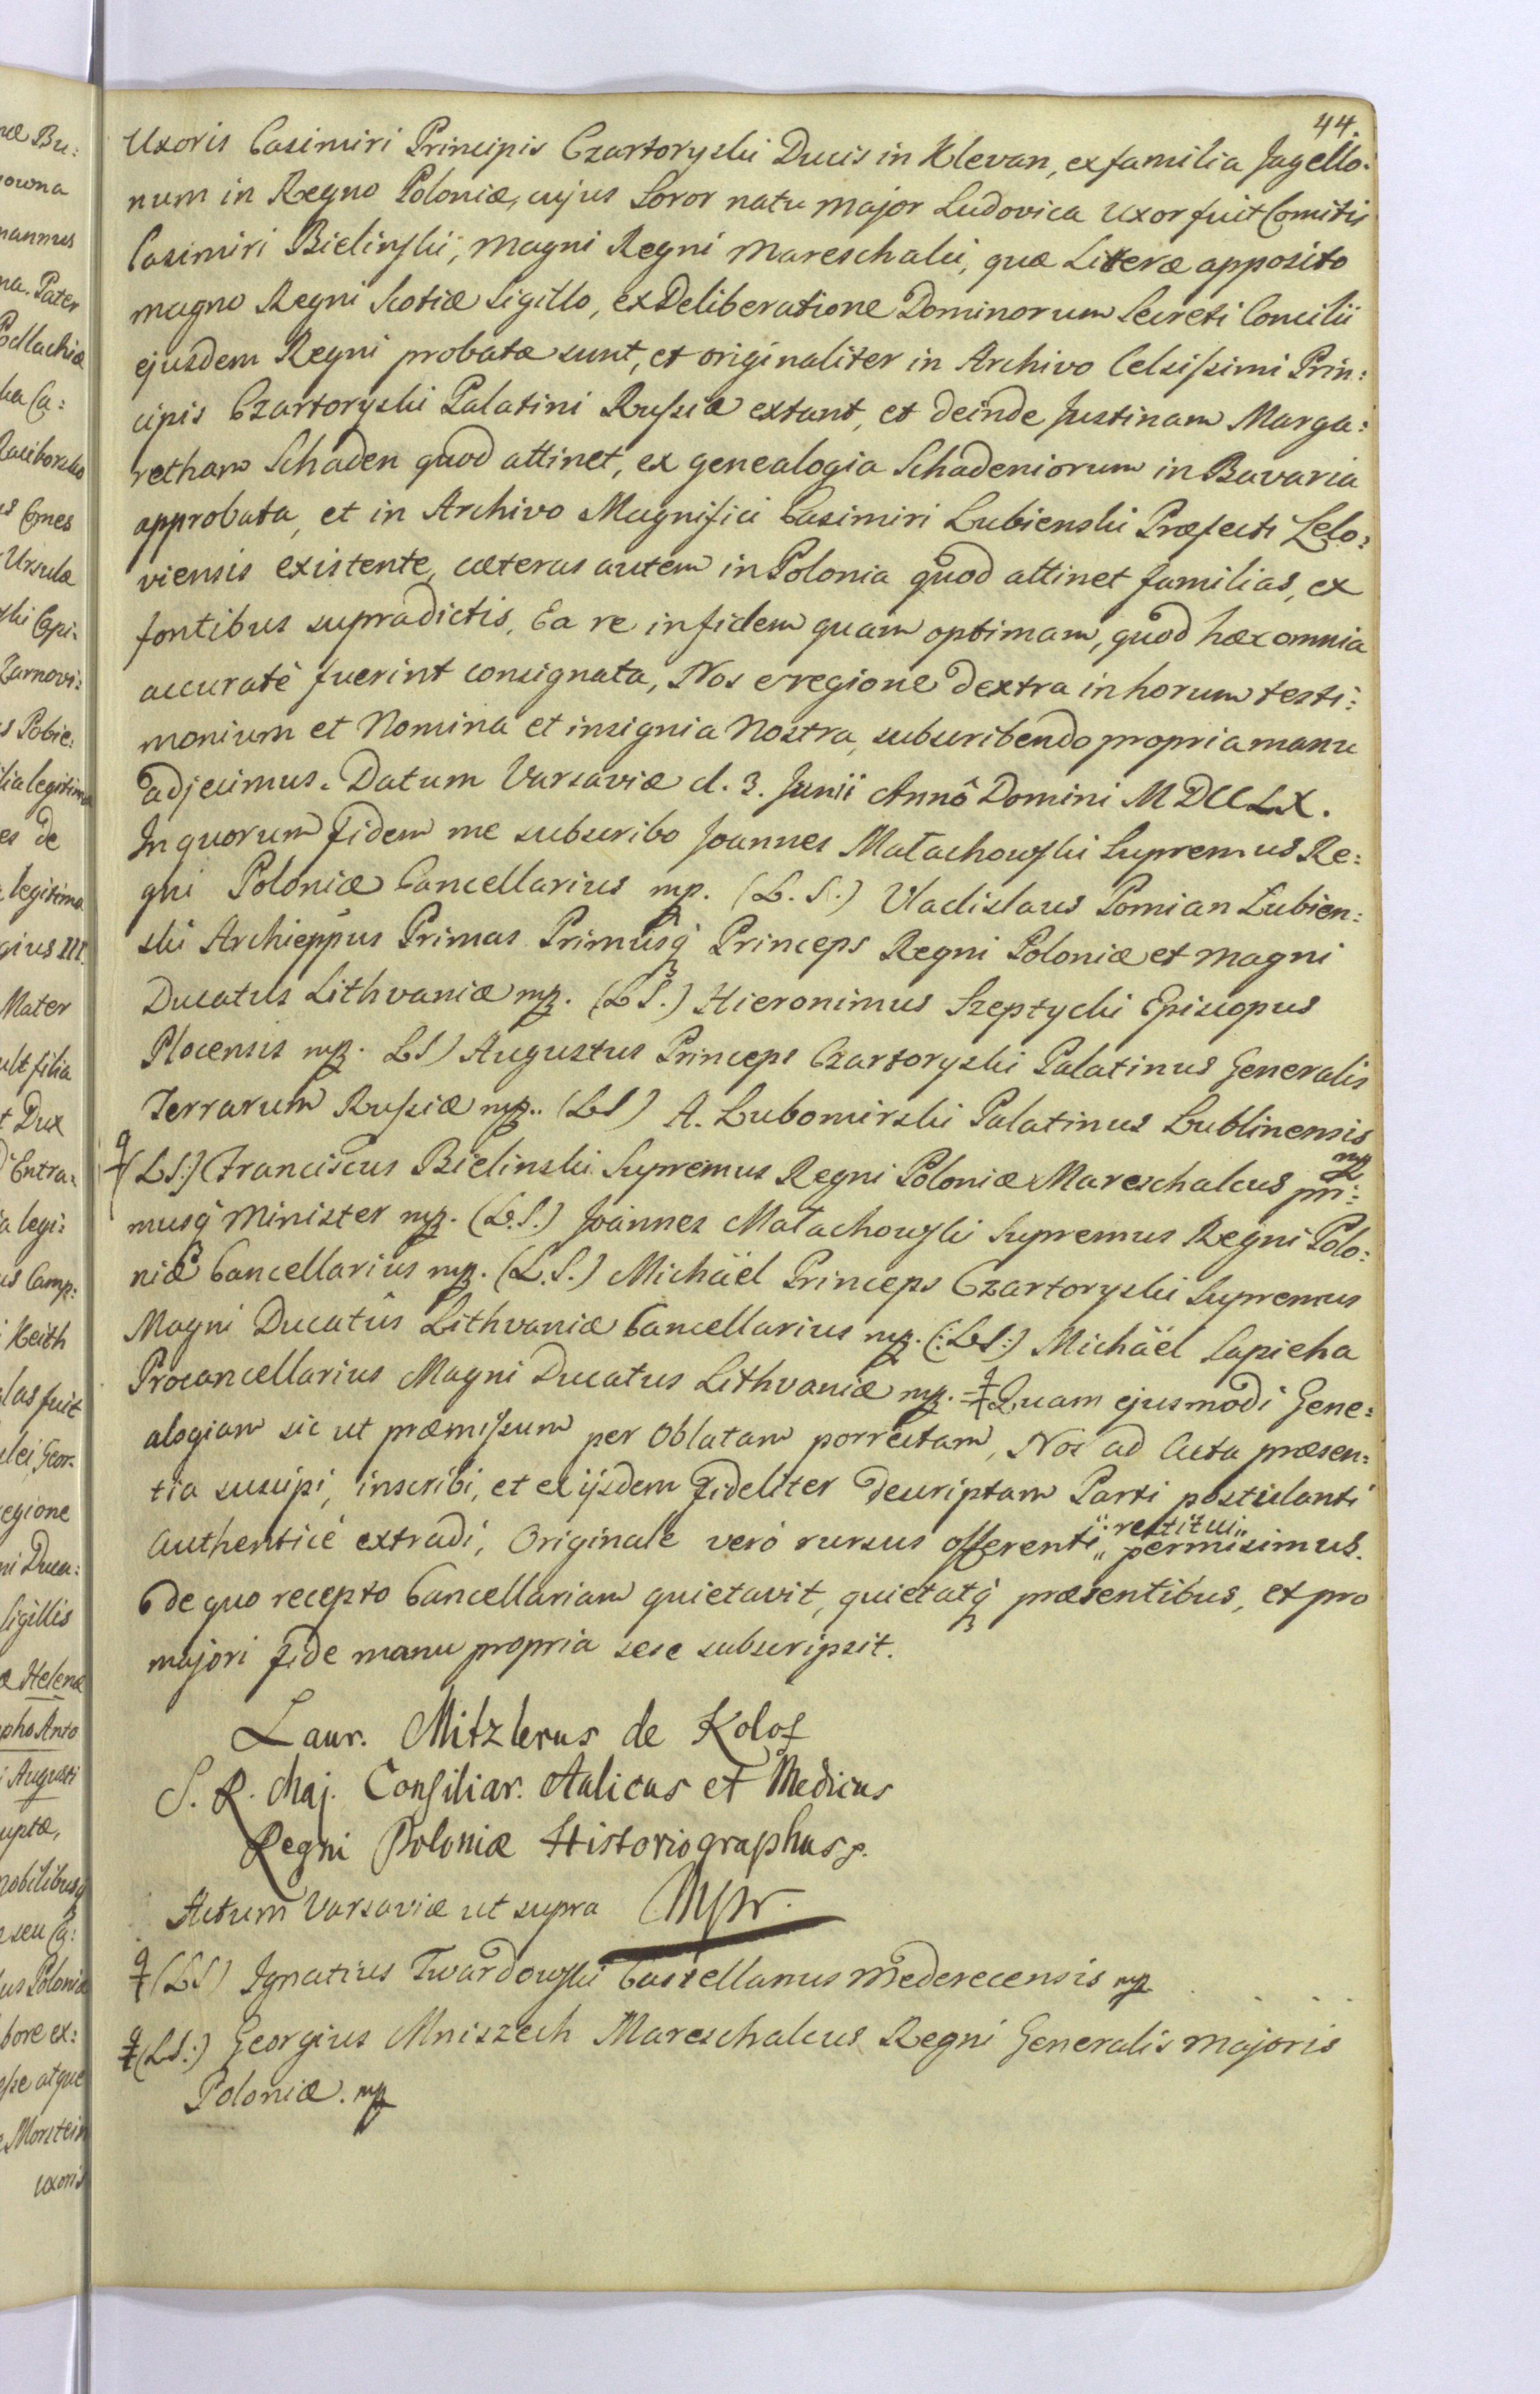 44.
Uxoris Casimiri Principis Czartoryski Ducis in Klevan, ex familia Jagello:
num in Regno Poloniæ, cujus Soror natu major Ludovica uxor fuit Comitis
Casimiri Bielinski, Magni Regni Mareschalci, quæ Literæ apposito
magno Regni Scotiæ Sigillo, ex Deliberatione Dominorum Secreti Concilii
ejusdem Regni probatæ sunt, et originaliter in Archivo Celsissimi Prin:
cipis Czartoryski Palatini Russiæ extant, et deinde Justinam Marga:
retham Schaden quod attinet, ex genealogia Schadeniorum in Bavaria
approbata, et in Archivo Magnifici Casimiri Lubienski Præfecti Lelo:
viensis existente, cæteras autem in Polonia quod attinet familias, ex
fontibus supradictis. Ea re in fidem quam optimam, quod hæc omnia
accuratè fuerint consignata, Nos e regione dextra in horum testi:
monium et Nomina et insignia Nostra, subscribendo propria manu
adjecimus. Datum Varsaviæ d. 3. Junii Annô Domini MDCCLX.
In quorum fidem me subscribo Joannes Małachowski Supremus Re:
gni Poloniæ Cancellarius mp. (L.S.) Vladislaus Pomian Łubien:
ski Archieppus Primas Primusq Princeps Regni Poloniæ et magni
Ducatus Lithvaniæ mp. (LS.) Hieronimus Szeptycki Episcopus
Plocensis mp. LS) Augustus Princeps Czartoryski Palatinus Generalis
Terrarum Russiæ mp. (LS) A. Lubomirski Palatinus Lublinensis
mp
(LS:) Franciscus Bielinski Supremus Regni Poloniæ Mareschalcus pri:
musq Minister mp. (L.S.) Joannes Małachowski Supremus Regni Polo:
niæ Cancellarius mp. (L.S.) Michäel Princeps Czartoryski Supremus
Magni Ducatûs Lithvaniæ Cancellarius mp. (:LS:) Michäel Sapieha
Procancellarius Magni Ducatus Lithvaniæ mp. Quam ejusmodi Gene:
alogiam sic ut præmissum per Oblatam porrectam, Nos ad Acta præsen:
tia suscipi, inscribi, et ex ijsdem fideliter descriptam Parti postulanti
authenticè extradi, Originale verò rursus offerenti „restitui„ permisimus.
de quo recepto Cancellariam quietavit, quietatq præsentibus, et pro
majori fide manu propria sese subscripsit.
Laur. Mitzlerus de Kolof
S. R. Maj. Consiliar. Aulicus et Medicus
Regni Poloniæ Historiographus
Actum Varsaviæ ut supra Mpr.
(LS) Ignatius Twardowski Castellanus Mederecensis mp
(LS:) Georgius Mniszech Mareschalcus Regni Generalis majoris
Poloniæ. mp